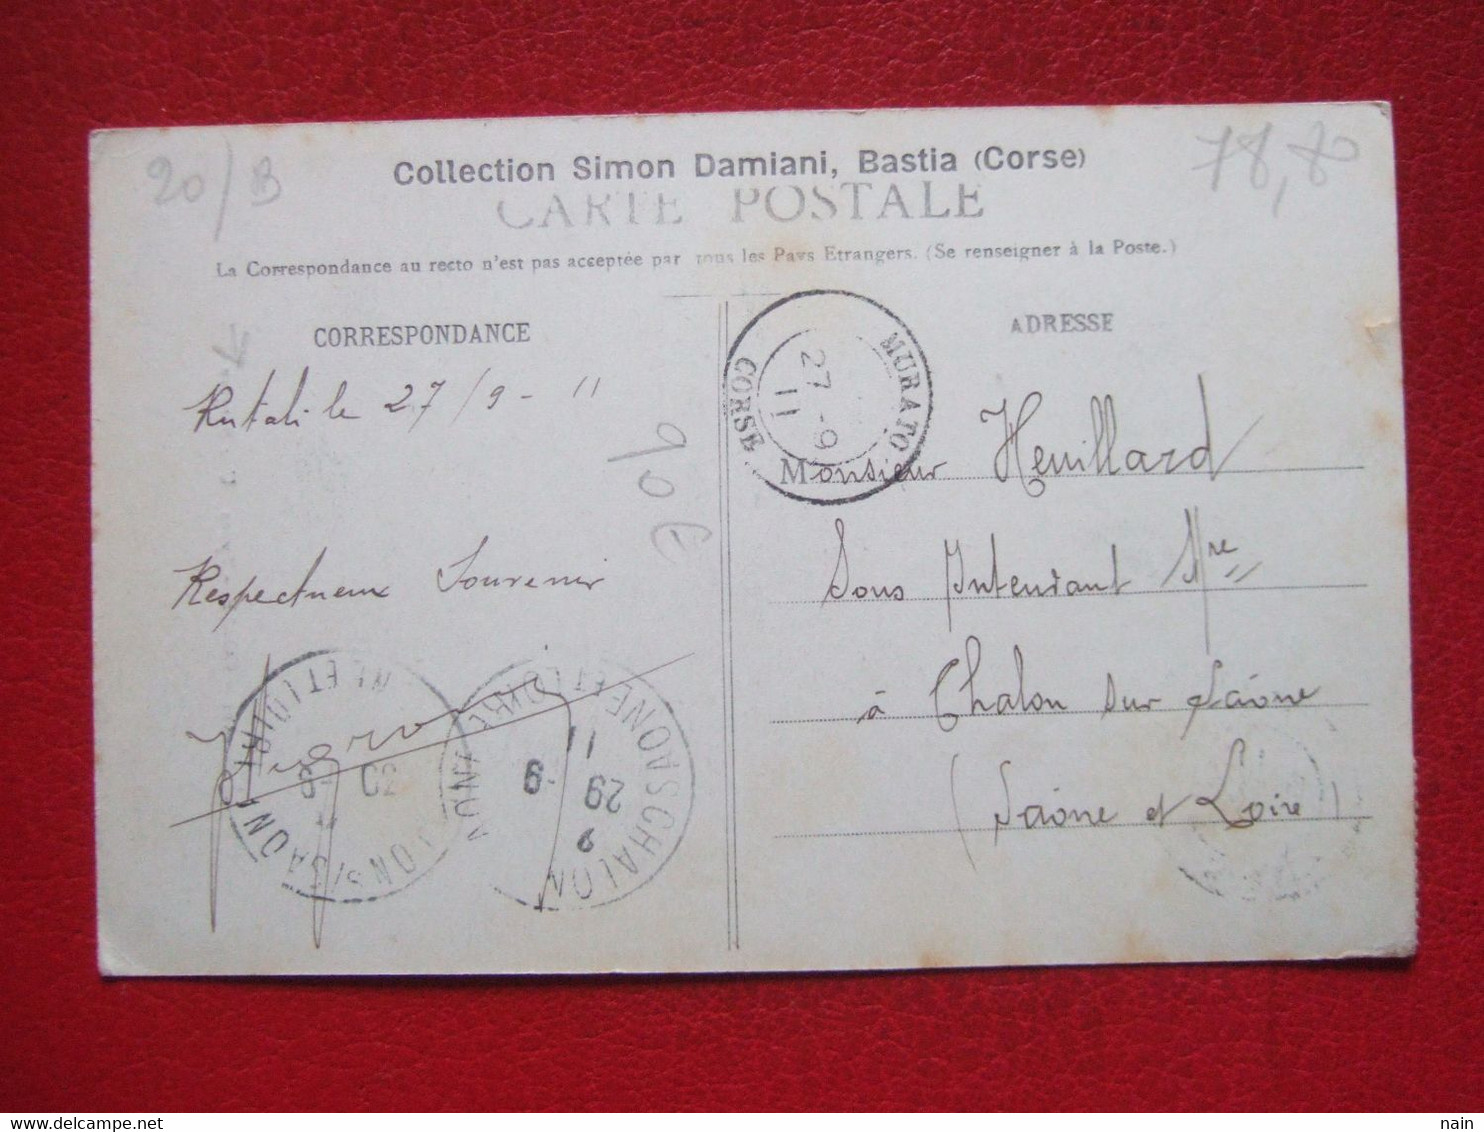 20/B
78,80
Collection Simon Damiani, Bastia (Corse)
CARTE POSTALE
La Correspondance au recto n'est pas acceptée par tous les Pays Etrangers. (Se renseigner à la Poste.)
CORRESPONDANCE
Rutali le 27/9-11
90€
Respectueux Souvenir
ADRESSE
MURATO
27-9
11
CORSE
Monsieur Heuillard
Sous Intendant Mre
à Chalon sur Saône
(Saône et Loire)
CHALON S SAONE
SAONE ET LOIRE
29-9
11
nain